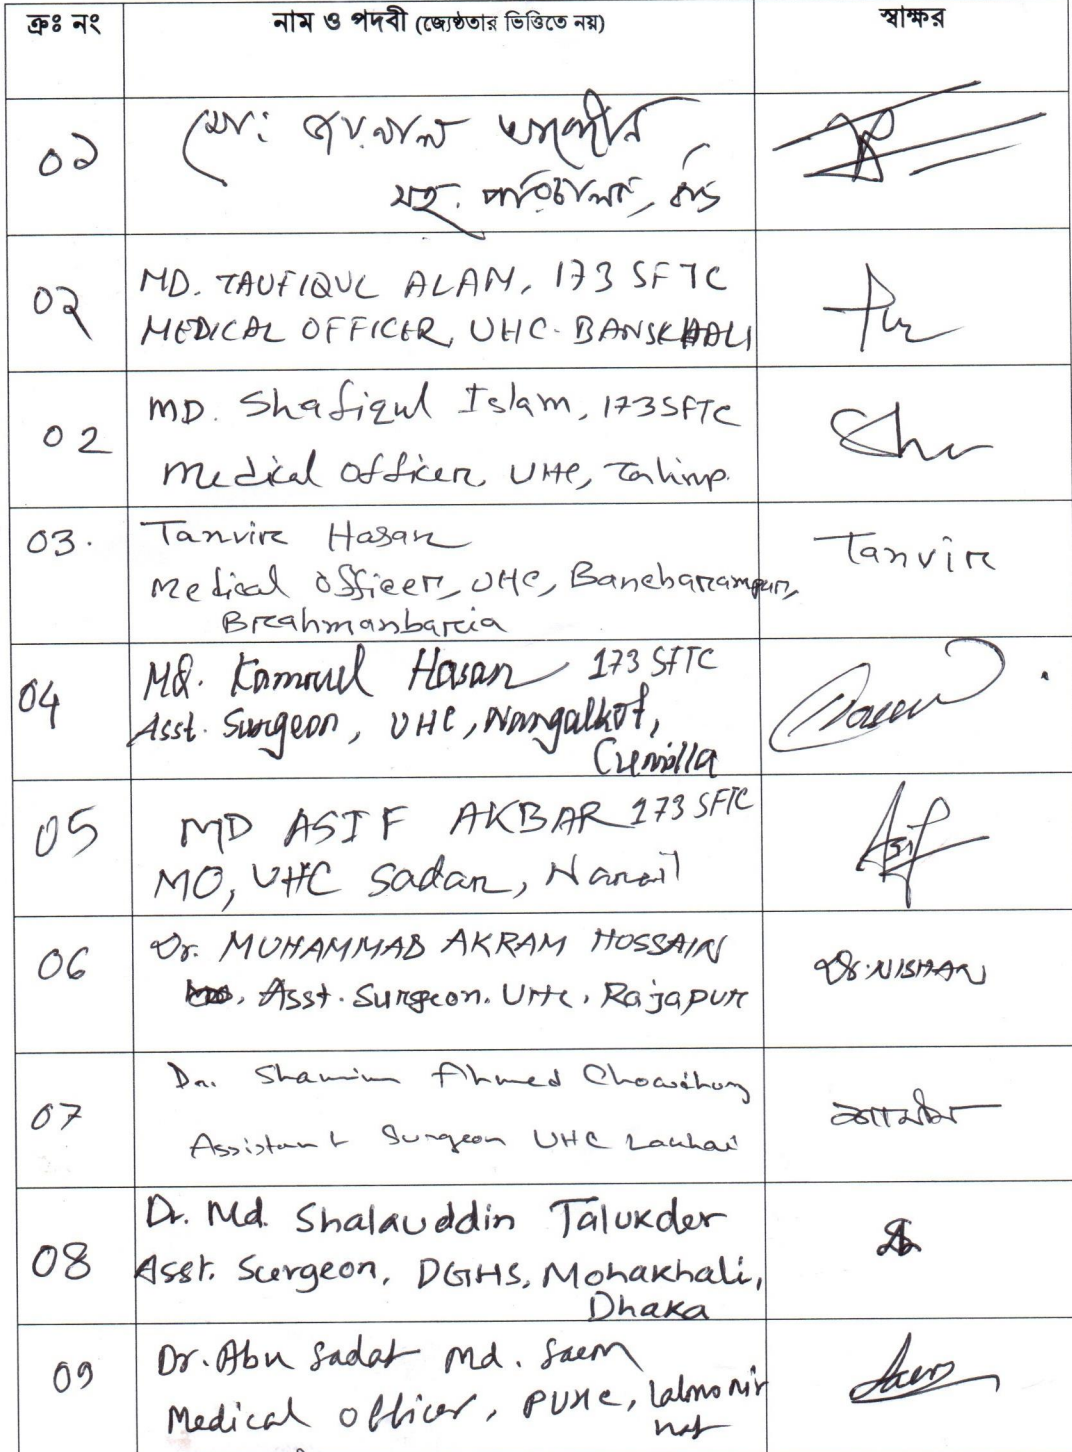 ক্রঃ নং নাম ও পদবী (জ্যেষ্ঠতার ভিত্তিতে নয়) স্বাক্ষর
০১ মো:
সহ. পরিচালক,
০২ MD. TAUFIQUL ALAM, 173 SFTC
MEDICAL OFFICER, UHC- BANSKHALI
02 MD. Shafiqul Islam, 173SFTC
Medical Officer, UHC,
03. Tanvir Hasan Tanvir
Medical Officer, UHC, Bancharampur,
Brahmanbaria
04 Md. Kamrul Hasan 173 SFTC
Asst. Surgeon, UHC, Nangalkot,
Cumilla
05 MD ASIF AKBAR 173 SFTC Asif
MO, UHC Sadar, Narail
06 Dr. MUHAMMAD AKRAM HOSSAIN Dr. NISHAN
Asst. Surgeon. UHC, Rajapur
07 Dr. Shamim Ahmed Chowdhury
Assistant Surgeon UHC Lakhai
08 Dr. Md. Shalauddin Talukder
Asst. Surgeon, DGHS, Mohakhali,
Dhaka
09 Dr. Abu Sadat Md. Saem Saem
Medical Officer, PUHC, lalmonir
hat